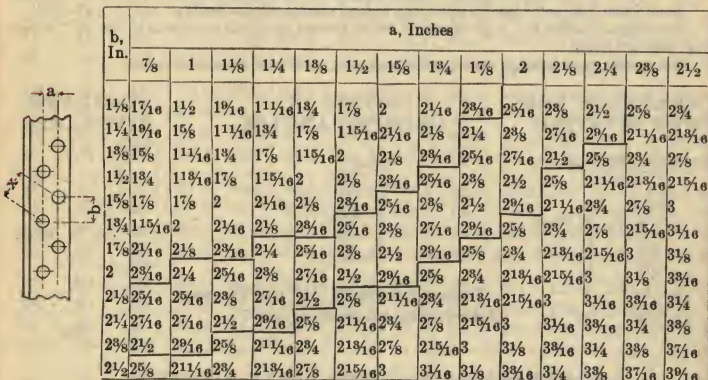 b, In.
a, Inches
7/8 1 1 1/8 1 1/4 1 3/8 1 1/2 1 5/8 1 3/4 1 7/8 2 2 1/8 2 1/4 2 3/8 2 1/2
a
x
b
1 1/8 1 7/16 1 1/2 1 9/16 1 11/16 1 3/4 1 7/8 2 2 1/16 2 3/16 2 5/16 2 3/8 2 1/2 2 5/8 2 3/4
1 1/4 1 9/16 1 5/8 1 11/16 1 3/4 1 7/8 1 15/16 2 1/16 2 1/8 2 1/4 2 3/8 2 7/16 2 9/16 2 11/16 2 13/16
1 3/8 1 5/8 1 11/16 1 3/4 1 7/8 1 15/16 2 2 1/8 2 3/16 2 5/16 2 7/16 2 1/2 2 5/8 2 3/4 2 7/8
1 1/2 1 3/4 1 13/16 1 7/8 1 15/16 2 2 1/8 2 3/16 2 5/16 2 3/8 2 1/2 2 5/8 2 11/16 2 13/16 2 15/16
1 5/8 1 7/8 1 7/8 2 2 1/16 2 1/8 2 3/16 2 5/16 2 3/8 2 1/2 2 9/16 2 11/16 2 3/4 2 7/8 3
1 3/4 1 15/16 2 2 1/16 2 1/8 2 3/16 2 5/16 2 3/8 2 7/16 2 9/16 2 5/8 2 3/4 2 7/8 2 15/16 3 1/16
1 7/8 2 1/16 2 1/8 2 3/16 2 1/4 2 5/16 2 3/8 2 1/2 2 9/16 2 5/8 2 3/4 2 13/16 2 15/16 3 3 1/8
2 2 3/16 2 1/4 2 5/16 2 3/8 2 7/16 2 1/2 2 9/16 2 5/8 2 3/4 2 13/16 2 15/16 3 3 1/8 3 3/16
2 1/8 2 5/16 2 5/16 2 3/8 2 7/16 2 1/2 2 5/8 2 11/16 2 3/4 2 13/16 2 15/16 3 3 1/16 3 3/16 3 1/4
2 1/4 2 7/16 2 7/16 2 1/2 2 9/16 2 5/8 2 11/16 2 3/4 2 7/8 2 15/16 3 3 1/16 3 3/16 3 1/4 3 3/8
2 3/8 2 1/2 2 9/16 2 5/8 2 11/16 2 3/4 2 13/16 2 7/8 2 15/16 3 3 1/8 3 3/16 3 1/4 3 3/8 3 7/16
2 1/2 2 5/8 2 11/16 2 3/4 2 13/16 2 7/8 2 15/16 3 3 1/16 3 1/8 3 3/16 3 1/4 3 3/8 3 7/16 3 9/16